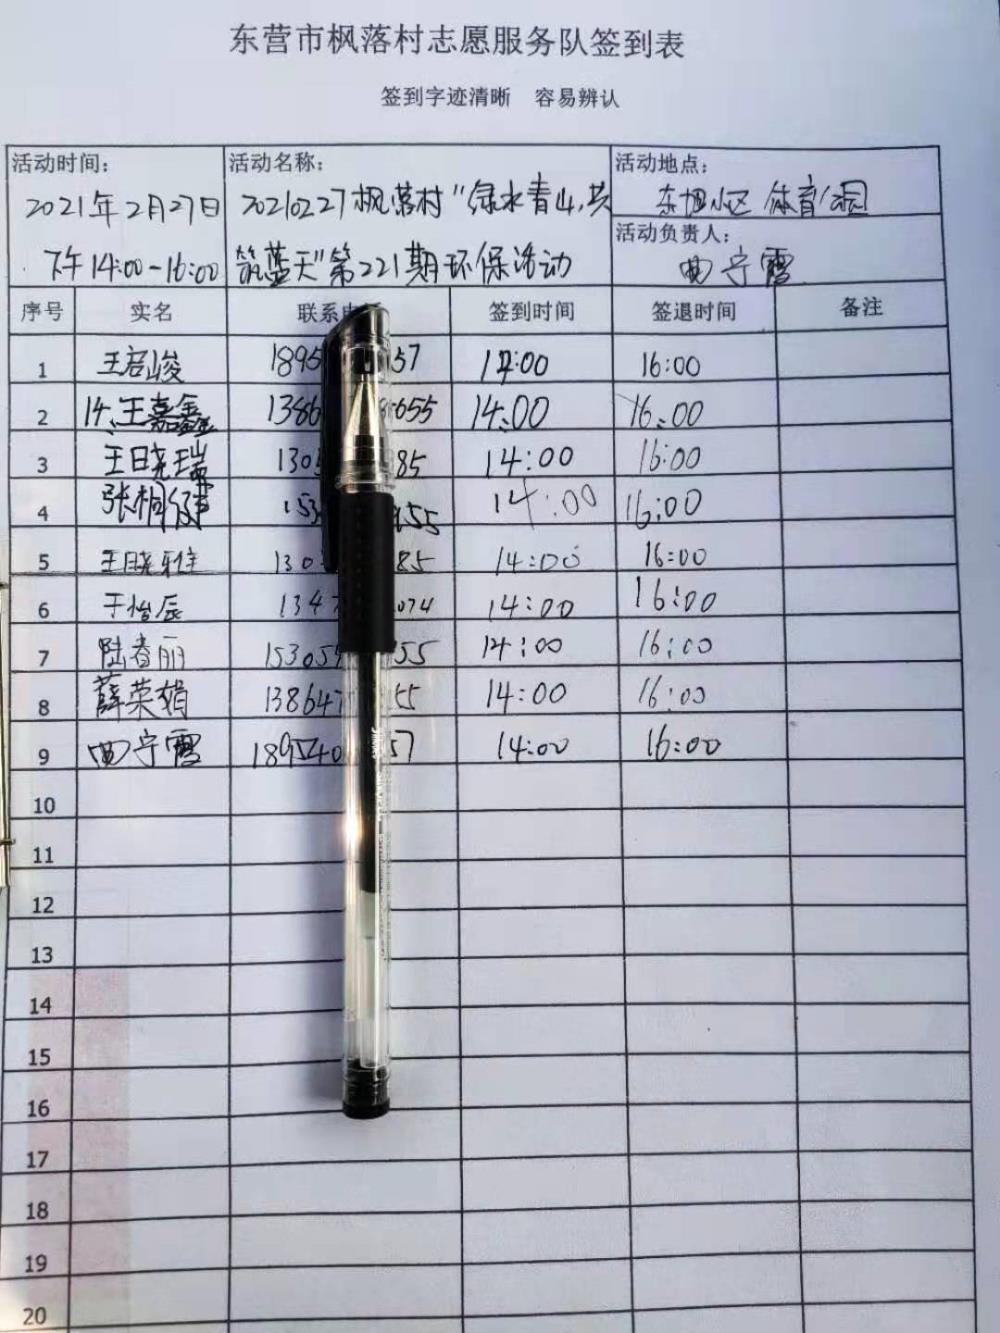 东营市枫落村志愿服务队签到表
签到字迹清晰 容易辨认
活动时间: 活动名称: 活动地点:
2021年2月27日 20210227枫落村"绿水青山,共 东旭小区 体育公园
活动负责人:
下午14:00-16:00 筑蓝天"第221期环保活动 曲宁霞
序号 实名 联系 签到时间 签退时间 备注
1 王启峻 1895 57 14:00 16:00
2 14、王嘉鑫 1386 655 14:00 16:00
3 王晓瑞 130 85 14:00 16:00
4 张桐 153 55 14:00 16:00
5 王晓雅 130 85 14:00 16:00
6 于怡辰 134 074 14:00 16:00
7 陆春丽 15305 55 14:00 16:00
8 薛荣娟 138647 55 14:00 16:00
9 曲宁霞 1895460 57 14:00 16:00
10
11
12
13
14
15
16
17
18
19
20